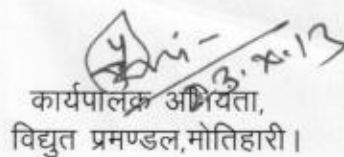 03.XI.13
कार्यपालक अभियंता,
विद्युत प्रमण्डल,मोतिहारी।